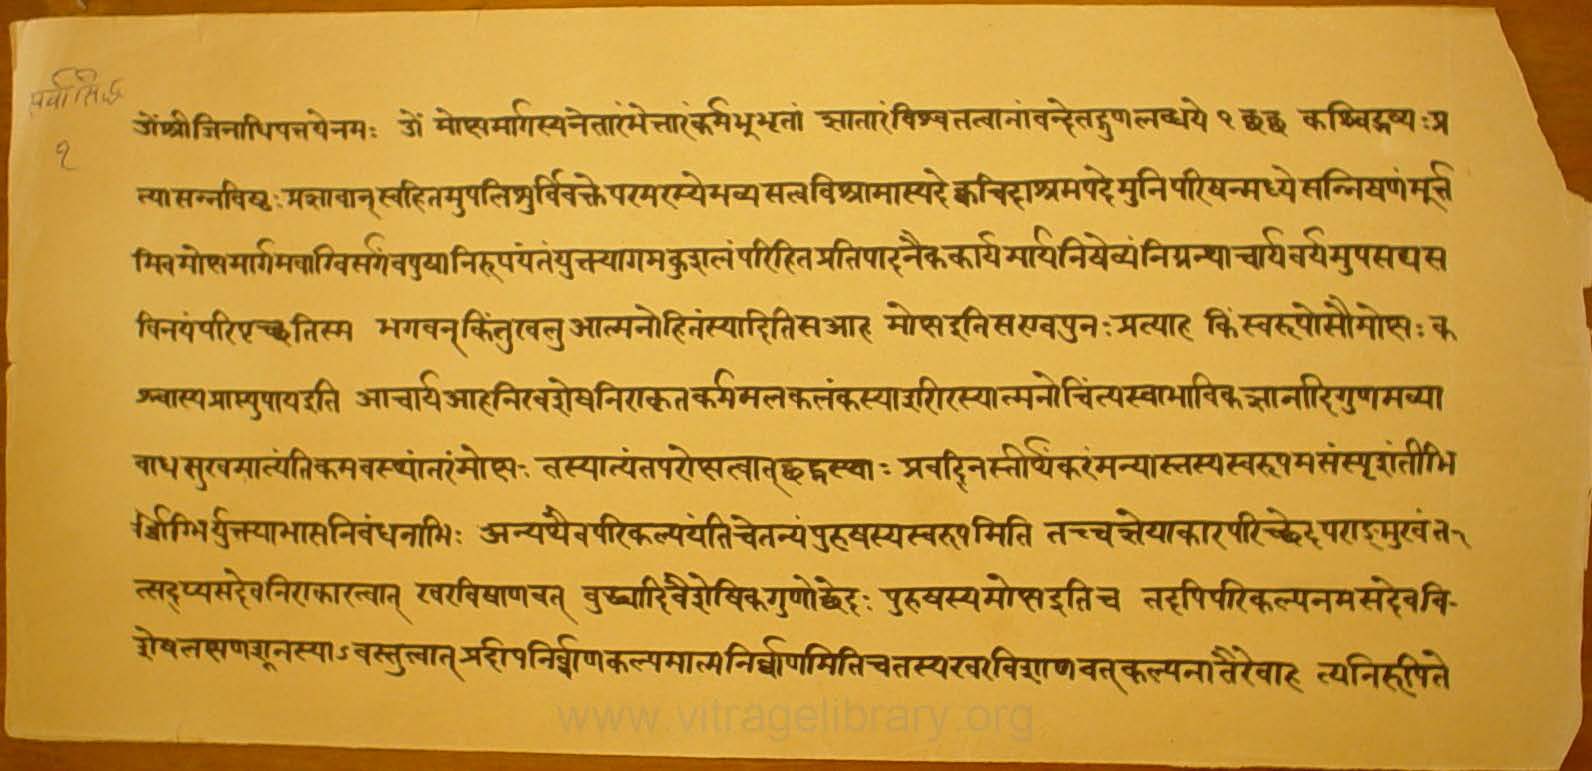 सर्वार्थसिद्धि
१
ओंश्रीजिनाधिपतयेनमः ओं मोक्षमार्गस्यनेतारंभेत्तारंकर्मभूभृतां ज्ञातारंविश्वतत्वानांवन्देतद्गुणलब्धये १ छछ कश्चिद्भव्यःप्र
त्यासन्ननिष्ठःप्रज्ञावान्स्वहितमुपलिप्सुर्विवक्तेपरमरम्येभव्यसत्वविश्रामास्पदेक्वचिदाश्रमपदेमुनिपरिषन्मध्येसन्निषणंमूर्त्त
मिवमोक्षमार्गमवाग्विसर्गंवपुषानिरूपयंतंयुक्त्यागमकुशलंपरिहितप्रतिपादनैककार्यमार्यनिषेव्यंनिग्रन्थाचार्यवर्यमुपसद्यस
विनयंपरिपृच्छतिस्म भगवन्किंनुखलुआत्मनोहितंस्यादितिसआह मोक्षइतिसएवपुनःप्रत्याह किंस्वरूपोसौमोक्षः क
श्चास्यप्राप्त्युपायइति आचार्यआहनिरवशेषनिराकृतकर्ममलकलंकस्याशरीरस्यात्मनोचिंत्यस्वाभाविकज्ञानादिगुणमव्या
बाधसुखमात्यंतिकमवस्थांतरंमोक्षः तस्यात्यंतपरोक्षत्वात्छद्मस्थाः प्रवादिनस्तीर्थंकरंमन्यास्तस्यस्वरूपमसंस्पृशंतीभि
र्व्वाग्भिर्युक्त्याभासनिबंधनाभिः अन्यथैवपरिकल्पयंतिचेतन्यंपुरुषस्यस्वरूपमिति तच्चज्ञेयाकारपरिच्छेदपराङ्मुखंत-
त्सदप्यसदेवनिराकारत्वात् खरविषाणवत् बुद्ध्यादिवैशेषिकगुणोछेदः पुरुषस्यमोक्षइतिच तदपिपरिकल्पनमसदेववि-
शेषलक्षणशून्यस्याऽवस्तुत्वात्प्रदीपनिर्व्वाणकल्पमात्मनिर्व्वाणमितिचतस्यखरविशाणवत्कल्पनातैरेवाह त्यनिरूपिते
www.vitragelibrary.org